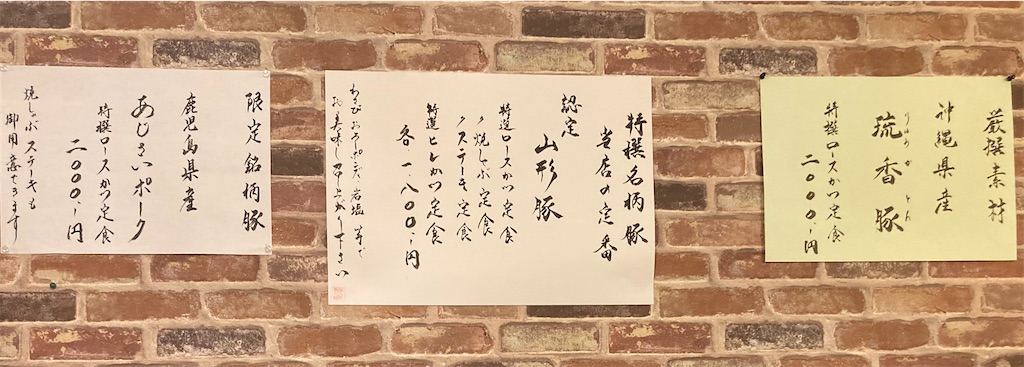 厳撰素材
沖縄県産
琉香豚
りゅうかとん
特撰ロースかつ定食
二〇〇〇、円
特撰名柄豚
当店の定番
認定
山形豚
特選ロースかつ定食
〃焼しゃぶ定食
〃ステーキ定食
特選ヒレかつ定食
各一、八〇〇、円
わさびおろしポン酢岩塩等で
お美味し召し上がり下さい
限定銘柄豚
鹿児島県産
あじさいポーク
特撰ロースかつ定食
二〇〇〇、円
焼しゃぶステーキも
御用意できます